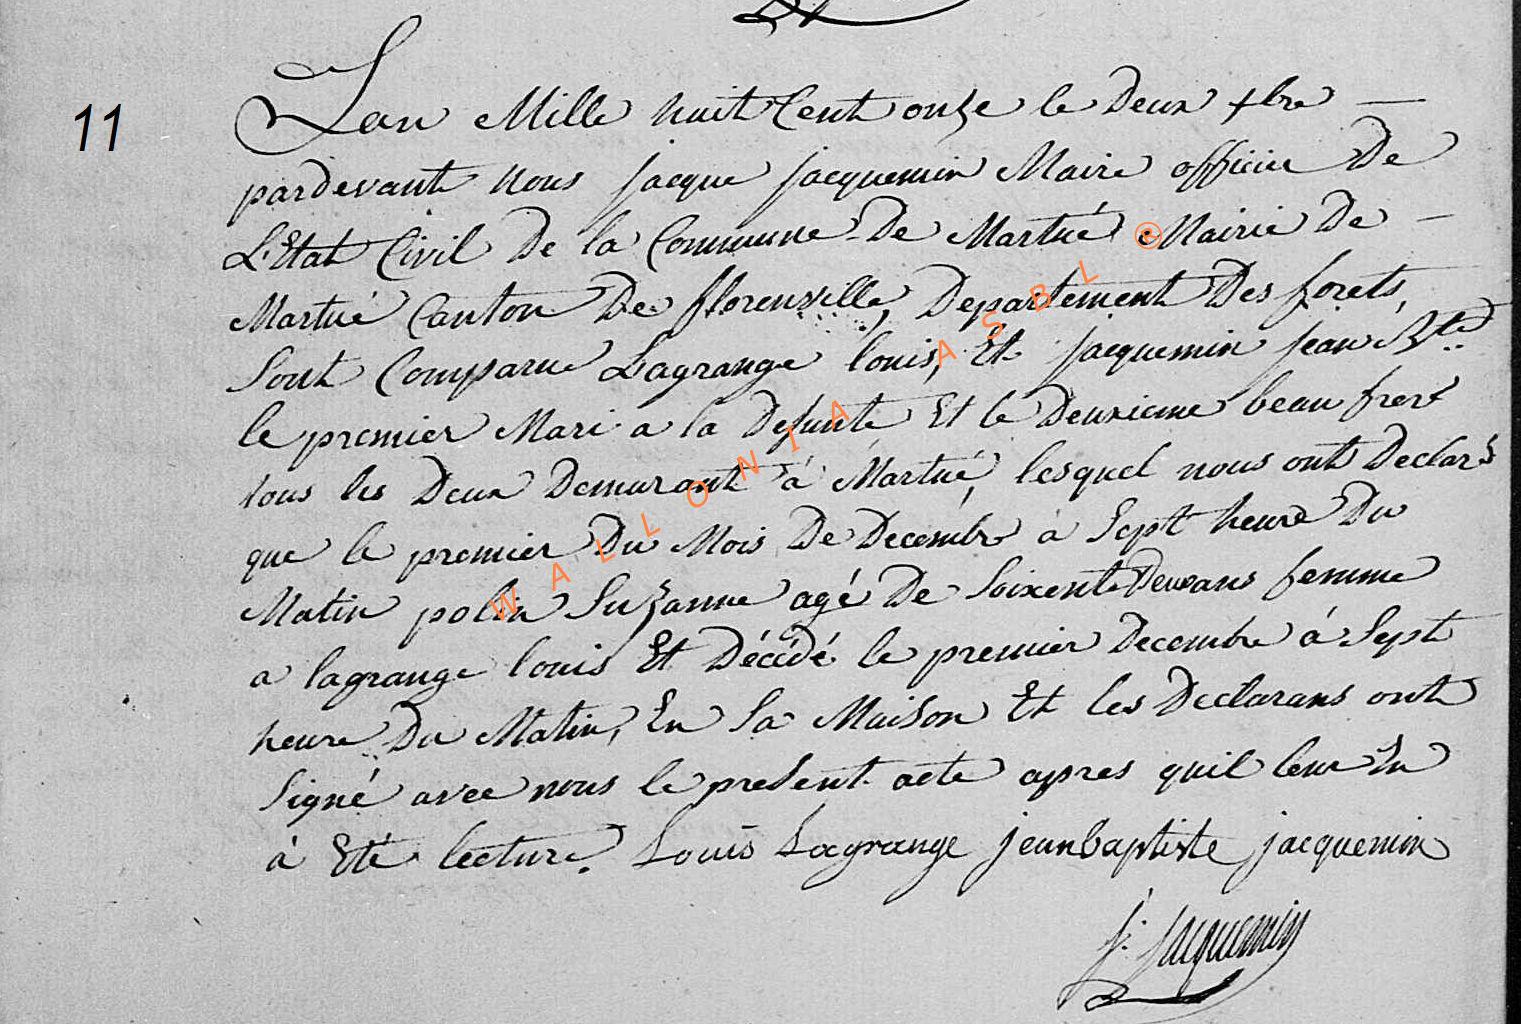 11
Lan Mille huit Cent onze le Deux xbre —
pardevant nous jacque jacquemin Maire officier De
L'Etat Civil De la Commune De Martué Mairie De —
Martué Canton De florenville, Departement Des forets,
Sont Comparue Lagrange louis, Et jacquemin jean Bte
le premier Mari a la Defunte Et le Deuxieme beau frere
tous les Deux Demurant á Martué, lesquel nous ont Declaré
que le premier Du Mois De Decembre à Sept heure Du
Matin polin Suzanne agé De Soixente Deux ans femme
a lagrange louis Et Décédé le premier Decembre á Sept
heure Du Matin, En Sa Maison Et les Declarans ont
Signé avec nous le present acte apres quil leur En
á Eté lecture. Louis Lagrange jeanbaptiste jacquemin
J: Jacquemin
WALLONIA ASBL ©